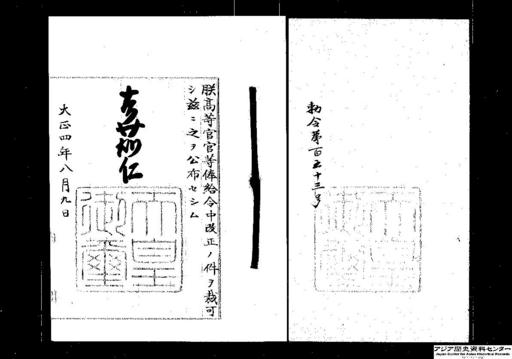 朕高等官官等俸給令中改正ノ件ヲ裁可
シ茲ニ之ヲ公布セシム
嘉仁
大正四年八月九日
天皇御璽
勅令第百五十三号
アジア歴史資料センター
Japan Center for Asian Historical Records